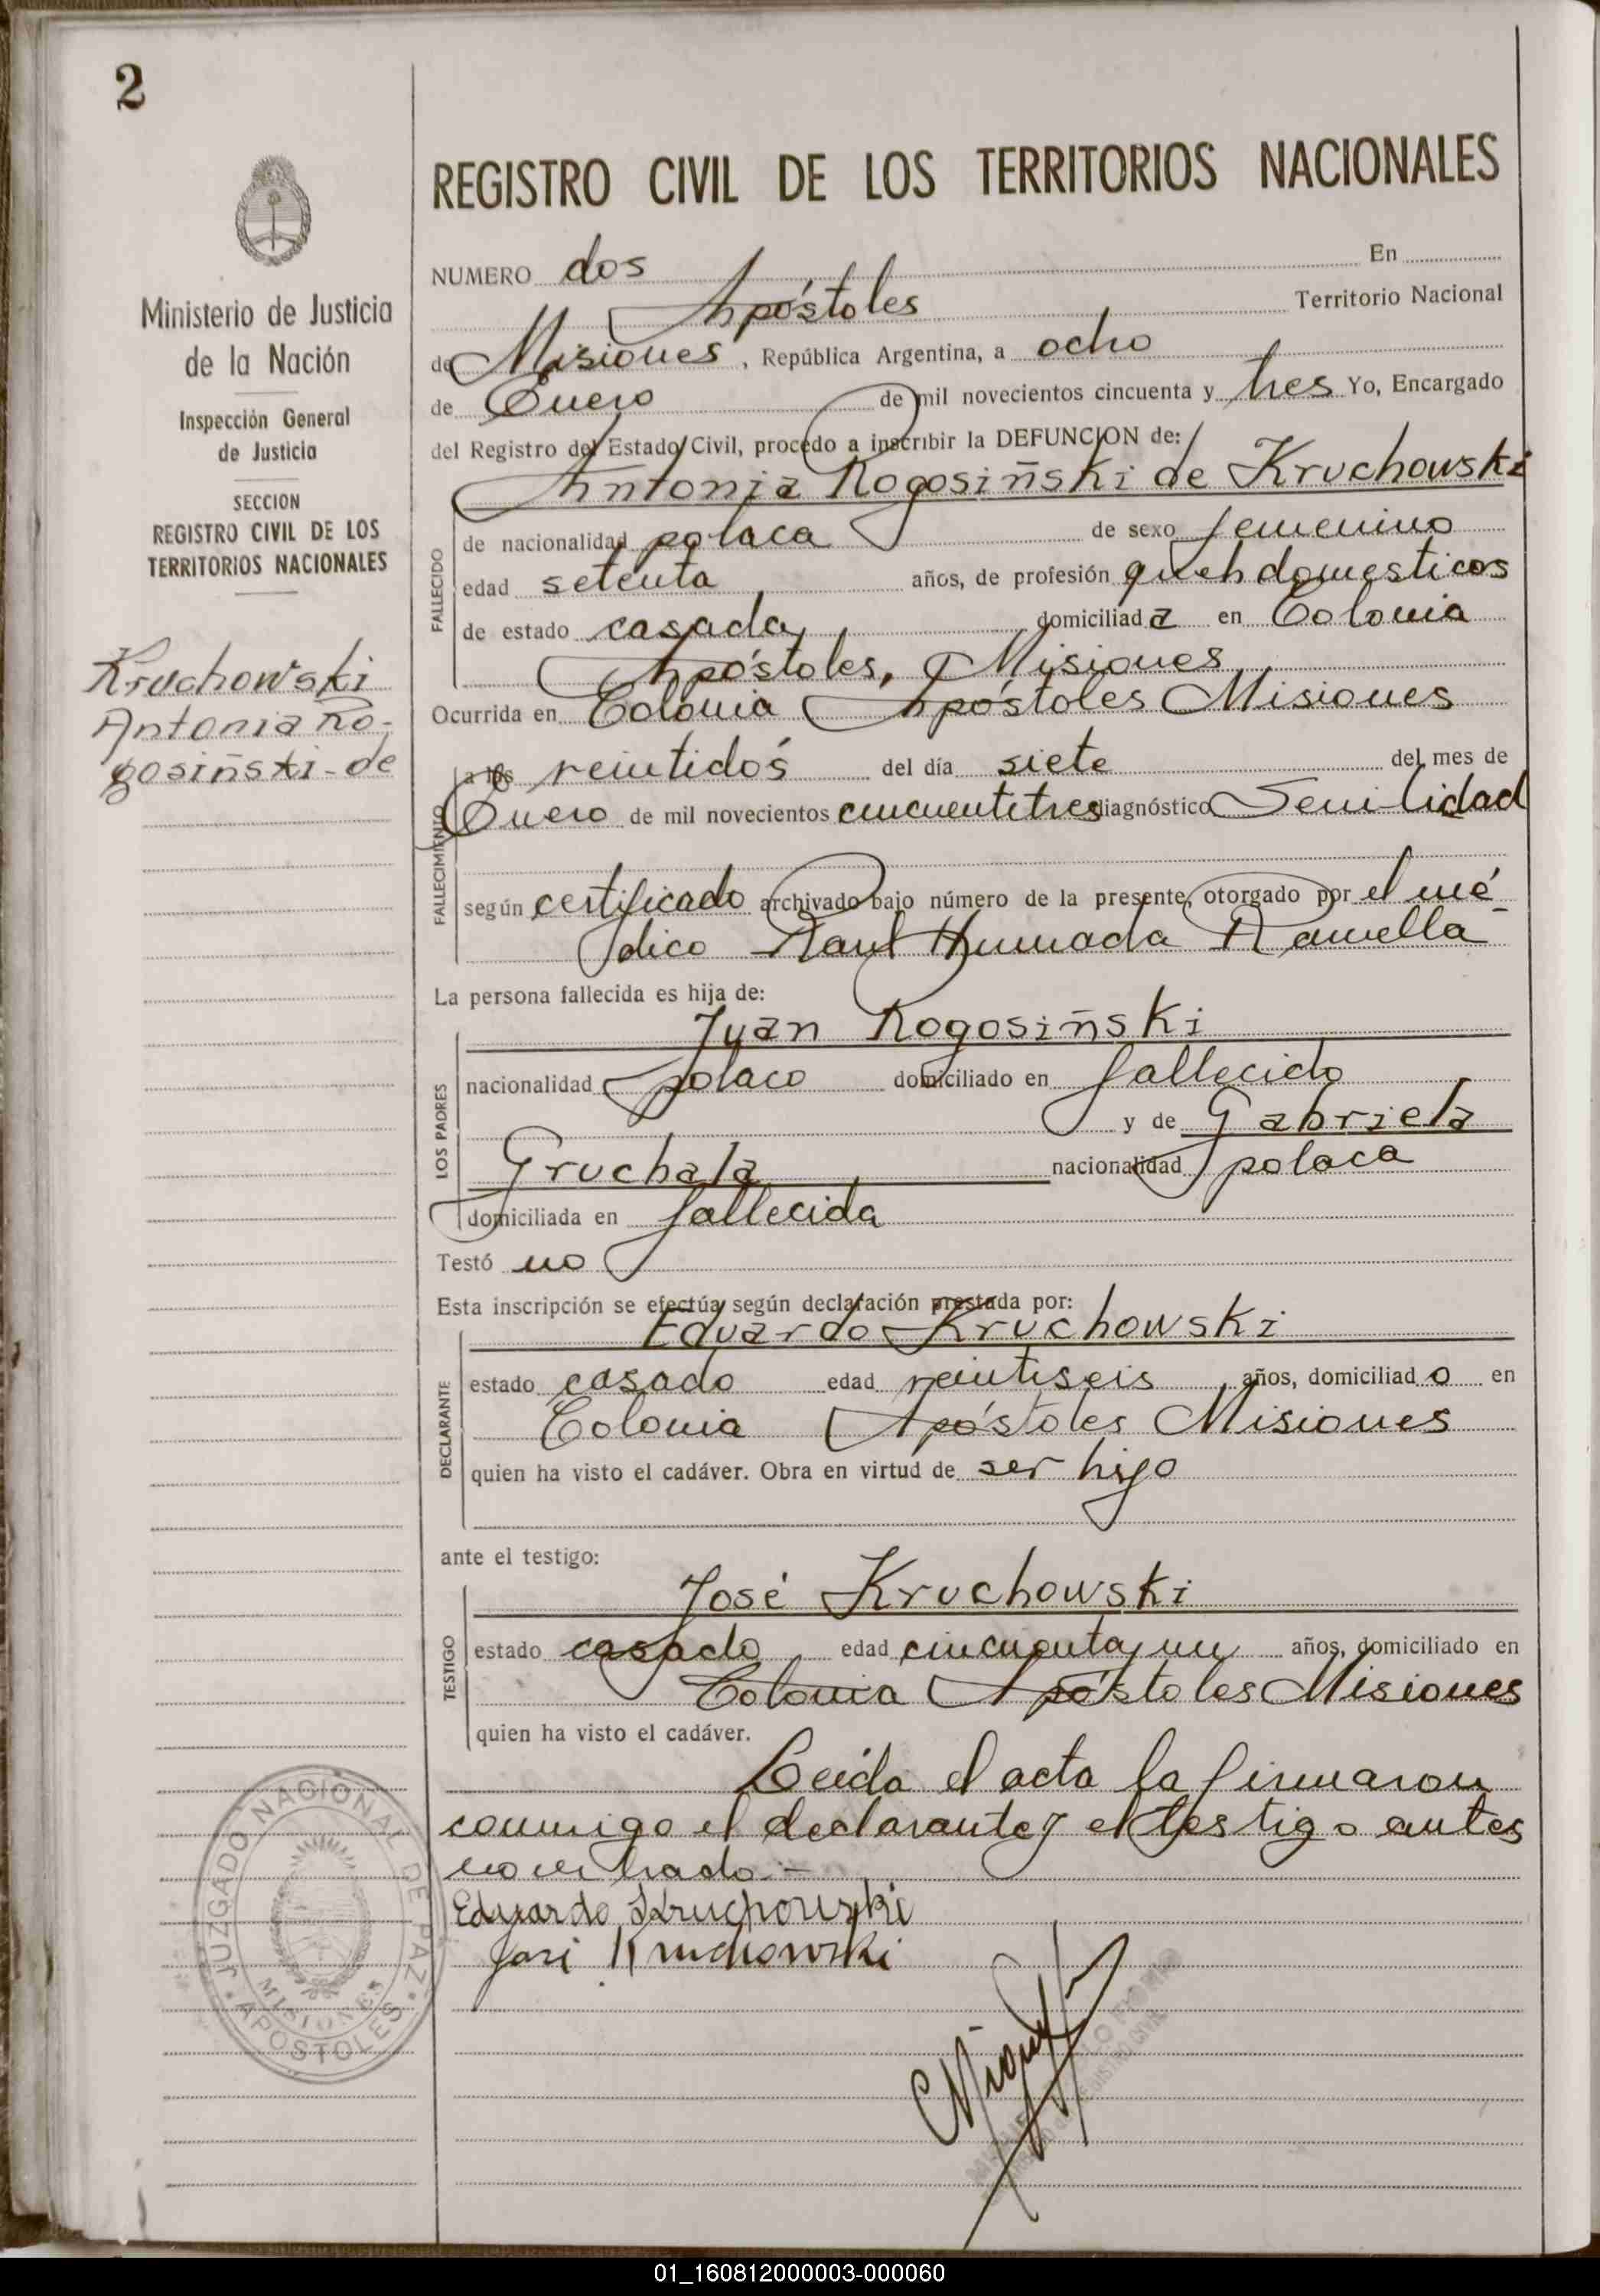 2
REGISTRO CIVIL DE LOS TERRITORIOS NACIONALES
Ministerio de Justicia
de la Nación
Inspección General
de Justicia
SECCION
REGISTRO CIVIL DE LOS
TERRITORIOS NACIONALES
Kruchowski
Antonia Ro-
gosiñski-de
NUMERO dos En
Apóstoles Territorio Nacional
de Misiones, República Argentina, a ocho
de Enero de mil novecientos cincuenta y tres Yo, Encargado
del Registro del Estado Civil, procedo a inscribir la DEFUNCION de:
Antonia Rogosiñski de Kruchowski
FALLECIDO
de nacionalidad polaca de sexo femenino
edad setenta años, de profesión queh domesticos
de estado casada domiciliada en Colonia
Apóstoles, Misiones
Ocurrida en Colonia Apóstoles Misiones
FALLECIMIENTO
a las veintidós del día siete del mes de
Enero de mil novecientos cincuentitres diagnóstico Senilidad
según certificado archivado bajo número de la presente, otorgado por el mé-
dico Raul Humada Ramella
La persona fallecida es hija de:
LOS PADRES
Juan Rogosiñski
nacionalidad polaco domiciliado en fallecido
y de Gabriela
Gruchala nacionalidad polaca
domiciliada en fallecida
Testó no
Esta inscripción se efectúa según declaración prestada por:
DECLARANTE
Eduardo Kruchowski
estado casado edad veintiseis años, domiciliado en
Colonia Apóstoles Misiones
quien ha visto el cadáver. Obra en virtud de ser hijo
ante el testigo:
TESTIGO
José Kruchowski
estado casado edad cincuenta y un años, domiciliado en
Colonia Apóstoles Misiones
quien ha visto el cadáver.
Leída el acta la firmaron
conmigo el declarante y el testigo antes
nombrado.-
Eduardo Kruchowski
José Kruchowski
JUZGADO NACIONAL DE PAZ
MISIONES
APOSTOLES
01_160812000003-000060